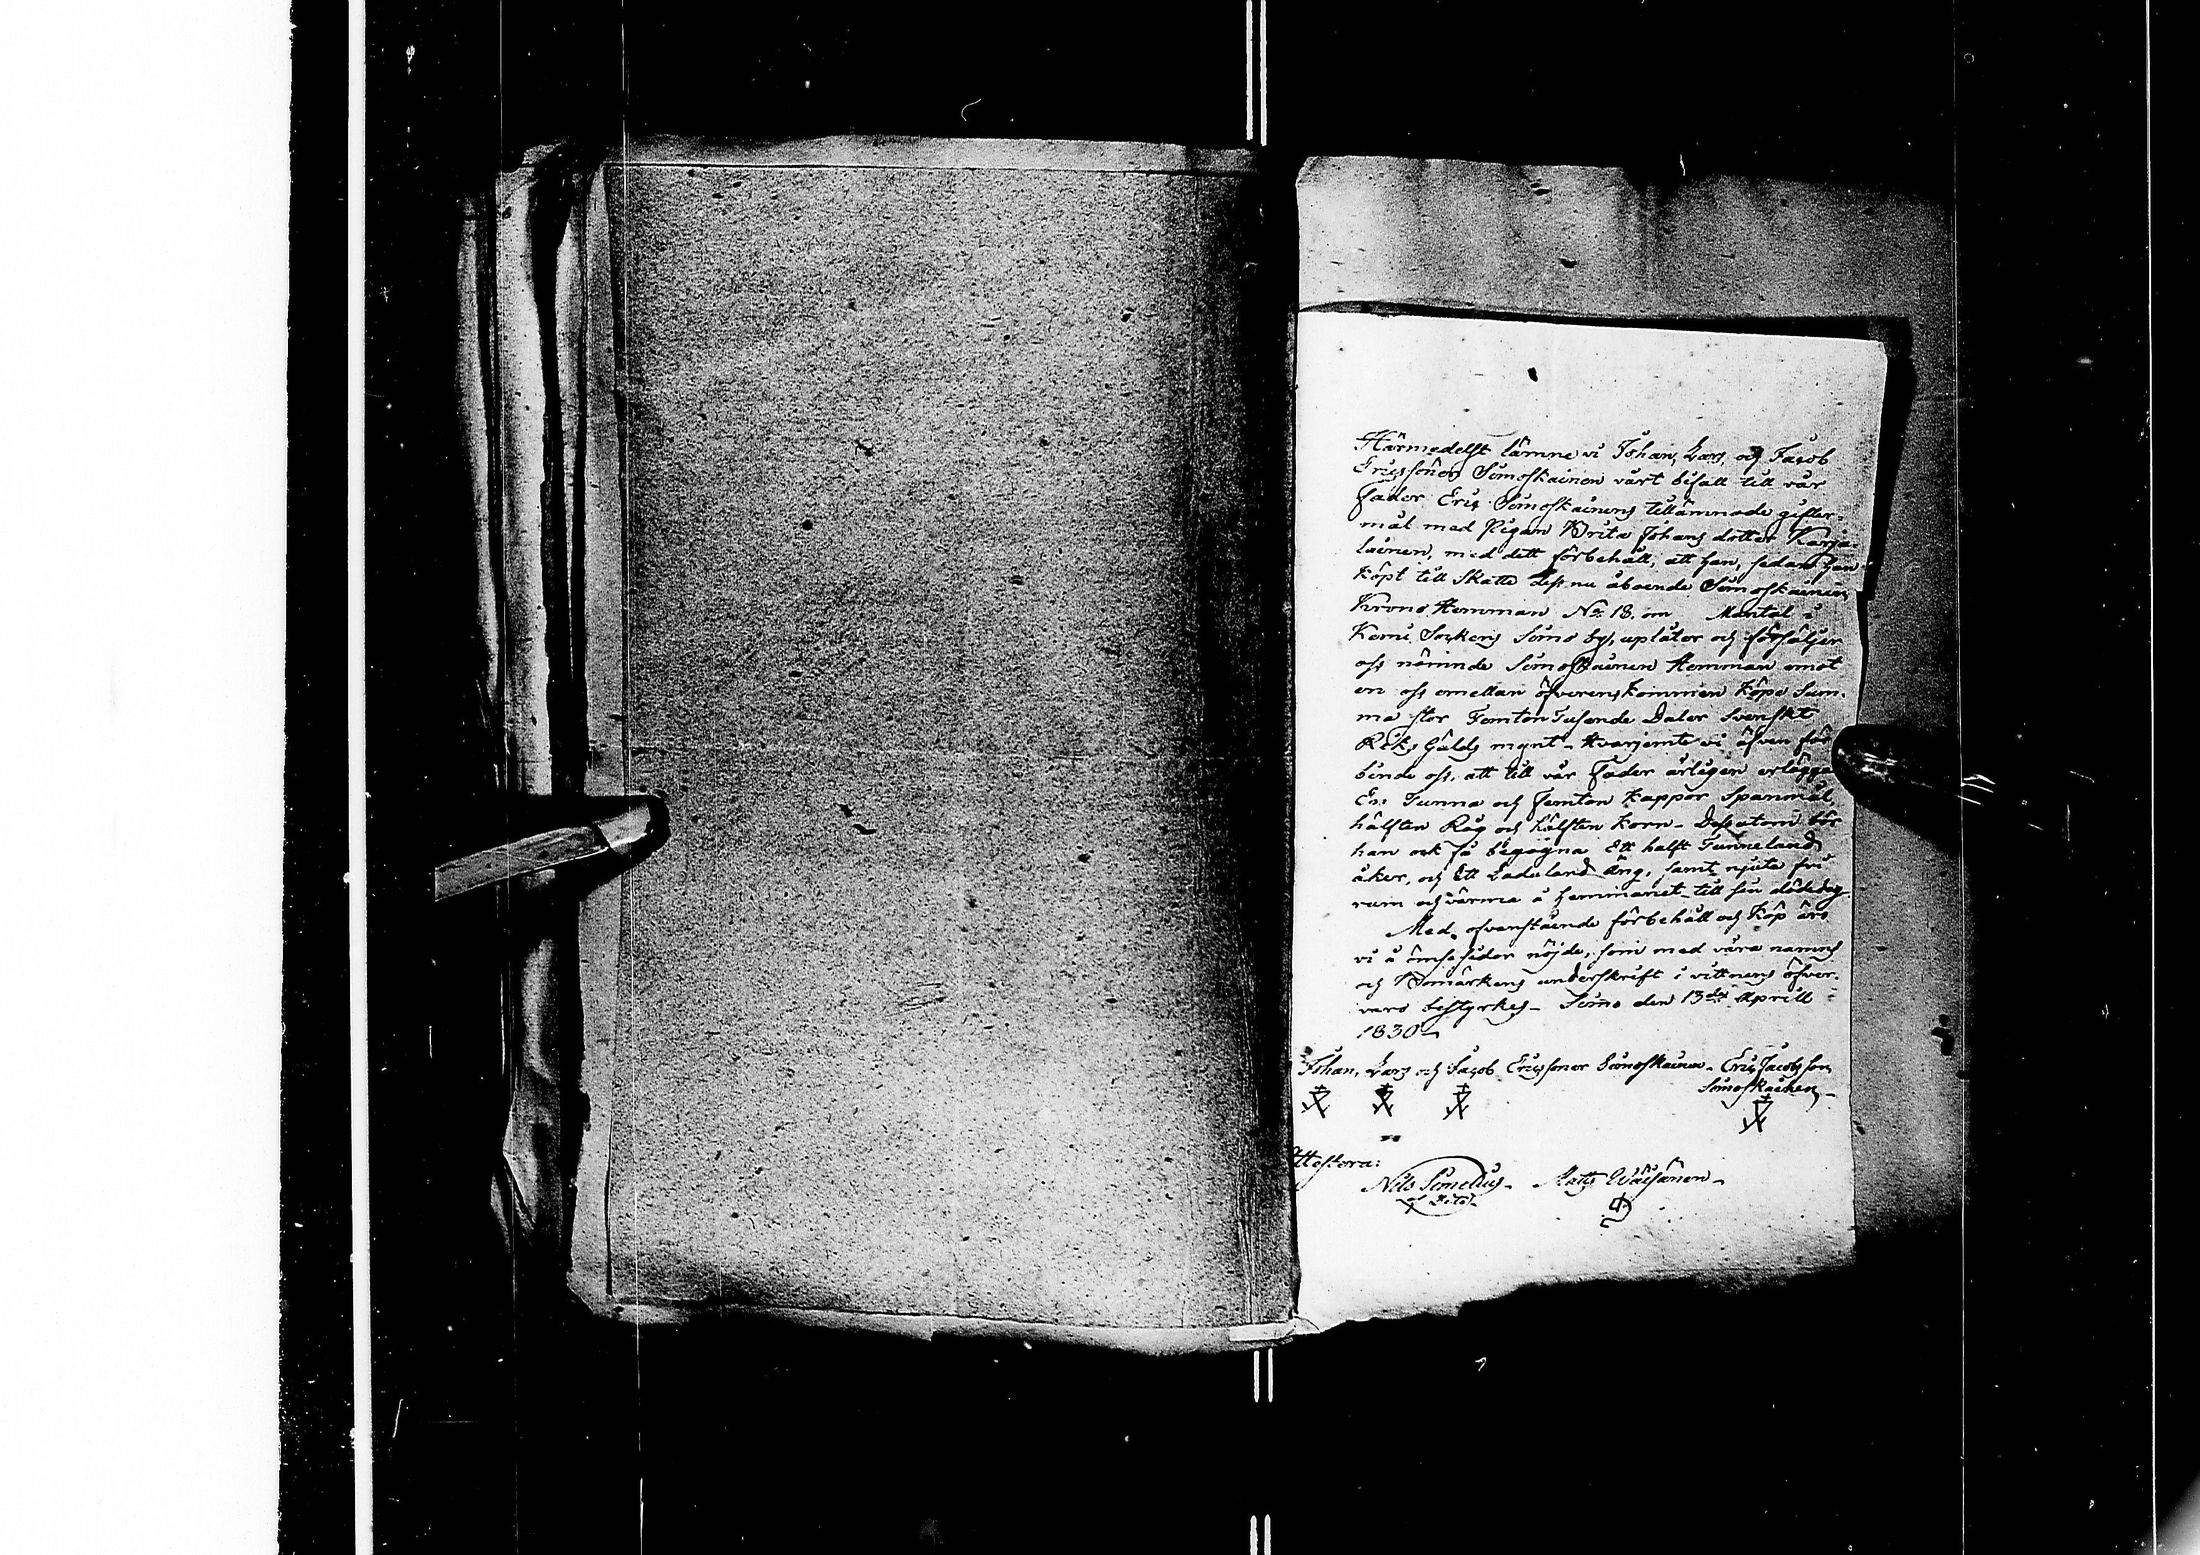 Härmedelst lämne vi Johan, Lars, och Jacob
Ericssöner Simoskainen vårt bifall till vår
fader Eric Simoskainens tillämnade gifter-
mål med Pigan Brita Johans dotter Karja-
lainen, med dett förbehåll, att han, sedan han
köpt till Skatte dess nu åboende Simoskainen
Krono Hemman No 18. om Mantal i
Kemi Sockens Simo by, uplåter och försäljer
oss nämnde Simoskainen Hemman emot
en oss emellan öfverenskommen köpe Sum-
ma stor Femton Tusende Daler Svenskt
Riks Gälds mynt - Hvarjemte vi äfven för-
binde oss, att till vår Fader årligen erlägga
En Tunna och femton kappor Spanmål,
hälften Råg och hälften Korn - Dessutom bör
han ock få begagna Ett halft Tunneland
åker, och Ett Ladu land äng, samt njuta fri
rum och värme å hemmanet till sin dödedag.
Med ofvanstående förbehåll och Köp äro
vi å ömse sidor nöjde, som med våra namns
och Bomärkens underskrift i vittnens öfver-
varo bestyrkes - Simo den 13de Aprill
1830 -
Johan, Lars och Jacob Ericssöner Simoskainen - Eric Jacobsson
Simoskainen -
Attestera:
Nils Simelius - Mats Wäisänen -